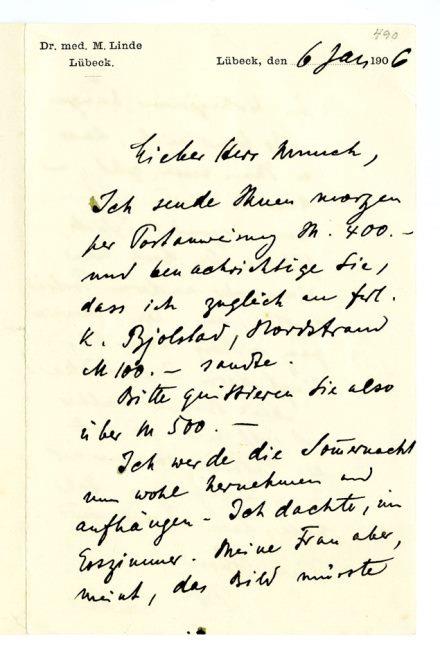 490
Dr. med. M. Linde
Lübeck.
Lübeck, den 6 Jan. 1906
Lieber Herr Munch,
Ich sende Ihnen morgen
per Postanweisung M. 400.-
und benachrichtige Sie,
dass ich zugleich an Frl.
K. Bjolstad, Nordstrand
M 100.- sandte.
Bitte quittieren Sie also
über M 500. -
Ich werde die Sommernacht
nun wohl hernehmen und
aufhängen - Ich dachte, im
Esszimmer. Meine Frau aber,
meint, das Bild müsste